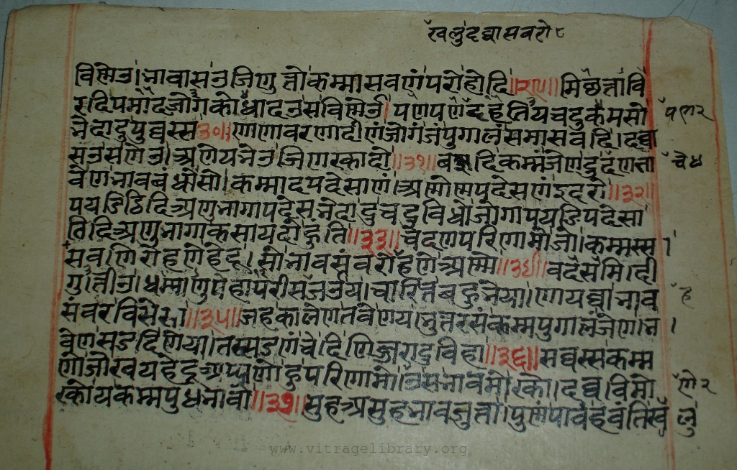 खलु दव्वासवरो ८
विणेउ।भावासउजिणुत्तोकम्मासवणंपरोहोदि॥२९॥मिछत्तावि
रदिपमादजोगकोधादउसविणेउ।पणपणदहतियचदुकमसो
भेदादुपुव्वस्स॥३०॥णाणावरणादीणंजोगंजंपुगालंसमासवदि।दव्वा
सउसणेउ।अणेयभेउजिणस्कादो॥३१॥दिकम्मंजेणदुदणभा चे ४
वेणभावबंधोसो।कम्मादपदेसाणं।अणोणपदेसणंइदरो॥३२॥
पयडिठिदिअणुभागापदेसभेदादुचदुविधोजोगापयडिपदेसा
तिदिअणुभागाकसायदोहुंति॥३३॥चेदणपरिणामोजो।कम्मस्स।
सवणिरोहणेहेदू।सोभावसंवरोहणेअणो॥३४॥वदसमिदी
गुत्तीउ।धम्माणुपेहापरीसजउया।चारित्तंबहुभेया।णायव्वाभाव ह
संवरविसेसा॥३५॥जहकालेणतवेणय।भुत्तरसंकम्मपुगालंजेणभा।
वेणसडदिणेया।तस्सडणंचेदिणिज्जरादुविहा॥३६॥सव्वस्सकम्म
णोजोखयहेदूअप्पणोहुपरिणामो।णेसभावमोरको।दव्वविमो
रकोयकम्मपुधभावो॥३७॥सुहअसुहभावजुत्तो।पुणपावंहवंतिख लु
www.vitragelibrary.org